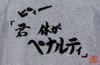 ピィー
「君一体が
ペナルティ」